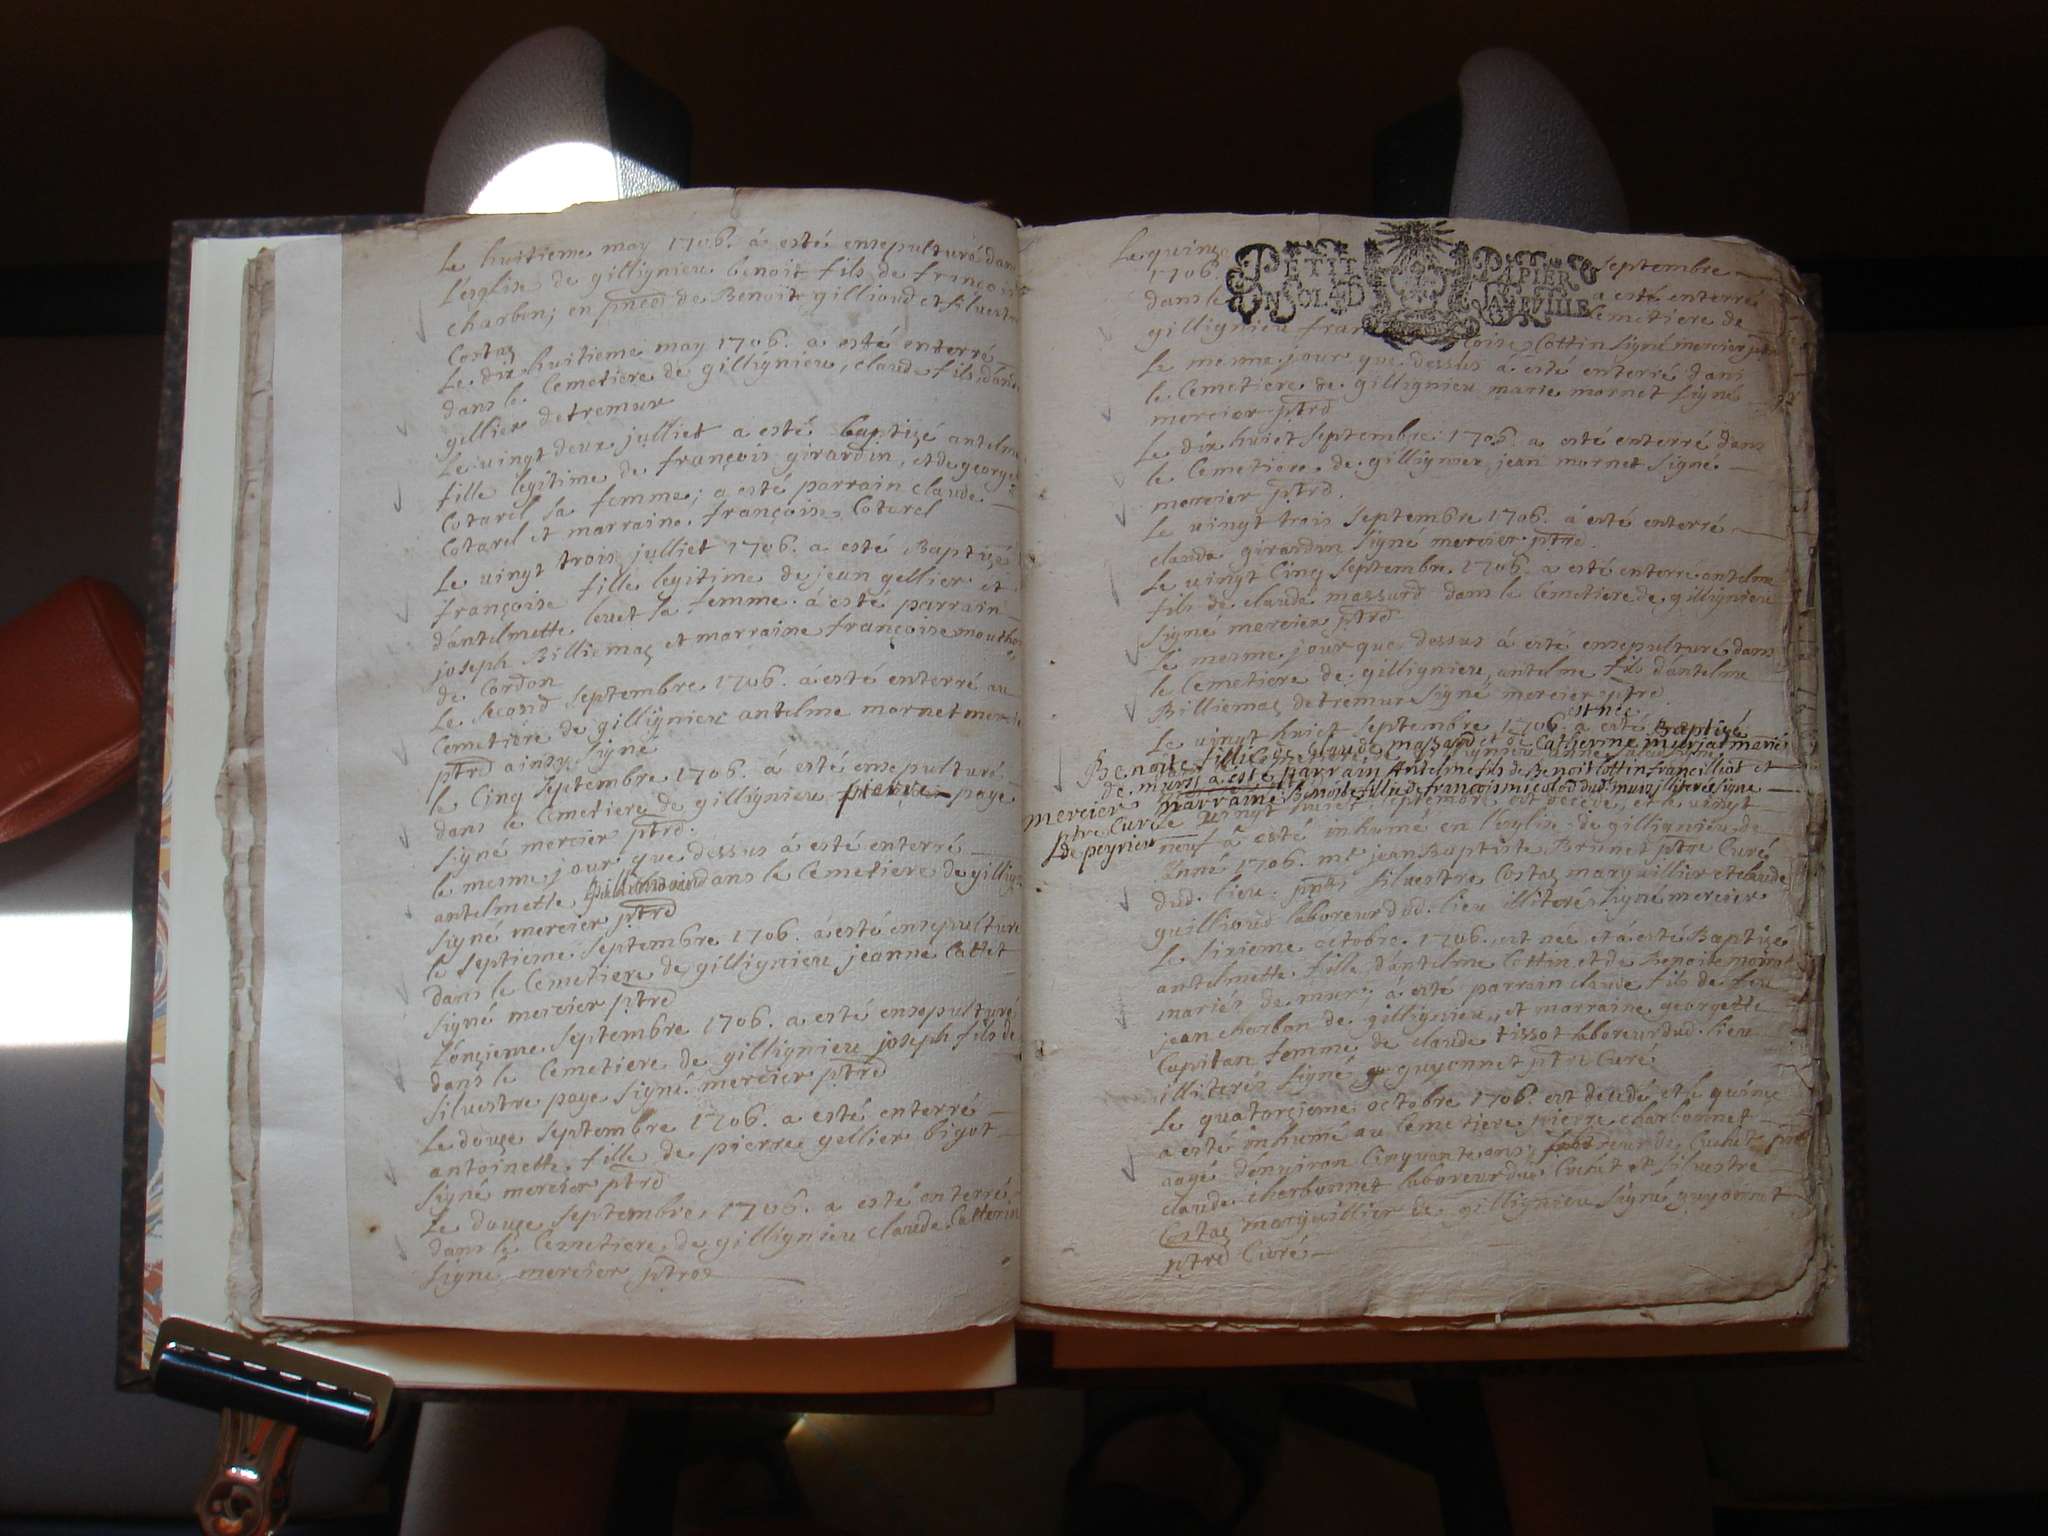 Le huitieme may 1706. á esté ensepulturé dans
l'esglise de gillignieu benoit fils de françois
charbon; en pnce de Benoit gillioud et silvestre
Costaz
Le dix huitieme may 1706. a esté enterré
dans le Cemetiere de gillignieu, claude fils
gellier de tremur
Le vingt deux julliet a esté baptizé antelme
fille legitime de françois girardin, et de george
Cotarel sa femme; a esté parrain claude
Cotarel et marraine françoise Cotarel
Le vingt trois julliet 1706. a esté Baptizé
françoise fille legitime de jean gellier et
d'antelmette levet sa femme. á esté parrain
joseph Billiemaz et marraine françoise
de Cordon
Le second septembre 1706. á esté enterré au
Cemetiere de gillignieu antelme mornet mercier
ptrd ainsy signé
le Cinq septembre 1706. á esté ensepulturé
dans le Cemetiere de gillignieu pierre paye
signé mercier ptrd.
le mesme jour que dessus á esté enterré
antelmette dans le Cemetiere de gillign
signé mercier ptrd
le septieme septembre 1706. á esté ensepulturé
dans le Cemetiere de gillignieu jeanne Cottet
signé mercier ptrd
L'onzieme septembre 1706. a esté ensepulturé
dans le Cemetiere de gillignieu joseph fils de
silvestre paye signé mercier ptrd
Le douze septembre 1706. a esté enterré
antoinette fille de pierre gellier bigot
signé mercier ptrd
Le douze septembre 1706. a esté enterré
dans le Cemetiere de gillignieu claude Catterin
signé mercier ptrd
PETIT PAPIER
ON SOLAD LA FEVILLE
Le quinz septembre
1706. a esté enterré
dans le Cemetiere de
gillignieu françoise Cottin signé mercier ptrd
Le mesme jour que dessus a esté enterré dans
le Cemetiere de gillignieu marie mornet signé
mercier ptrd
Le dix huict septembre 1706. a esté enterré dans
le Cemetiere de gillignieu jean mornet signé
mercier ptrd.
Le vingt trois septembre 1706. á esté enterré
claude girardin signé mercier ptrd.
Le vingt Cinq septembre 1706. a esté enterré antelme
fils de claude massard dans le Cemetiere de gillignieu
signé mercier ptrd
Le mesme jour que dessus á esté ensepulturé dans
le Cemetiere de gillignieu, antelme fils d'antelme
Billiemaz de tremur signé mercier ptrd
est née
Le vingt huict septembre 1706. a esté Baptizé
Benoite fille de claude massard et de Catherine murjat mariés
de murs a esté parrain Antelme fils de Benoit Cottin francilliot et
marraine Benoite fille de françois micolod dud. murs illiterés signé
mercier
ptre Curé
de peyrieu
Le vingt huict septembre est decedé, et le vingt
neuf á esté inhumé en l'esglise de gillignieu
1706. mre jean Baptiste Brunet ptre Curé
dud. lieu: pnts silvestre Costaz marguillier et claude
guillioud laboreur dud. lieu illiterés signé mercier
Le sixieme octobre 1706. est née et á esté Baptizé
antelmette fille d'antelme Cottin et de Benoite
mariés de mur; á esté parrain claude fils de feu
jean charbon de gillignieu, et marraine georgette
Capitan femme de claude tissot laboreur dud. lieu
illiterés signé guyonnet ptre Curé
Le quatorzieme octobre 1706. est decedé et le quinze
a esté inhumé au Cemetiere pierre charbonnet
aagé d'environ Cinquante ans, laboreur de Cuchet pnts
claude charbonnet laboreur dud. Cuchet et silvestre
Costaz marguillier de gillignieu signé guyonnet
ptrd Curé